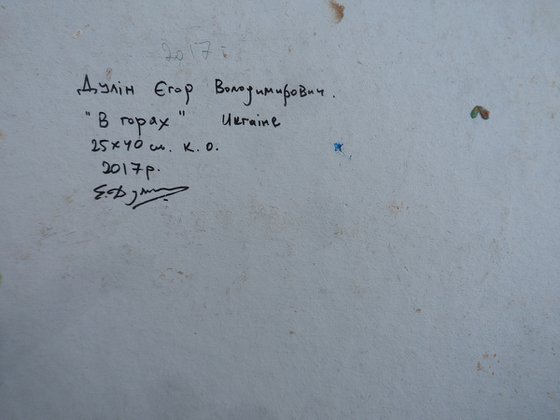 2017 г.
Дулін Єгор Володимирович.
"В горах" Ukraine
25×40 см. к. о.
2017 р.
Є.Дулін